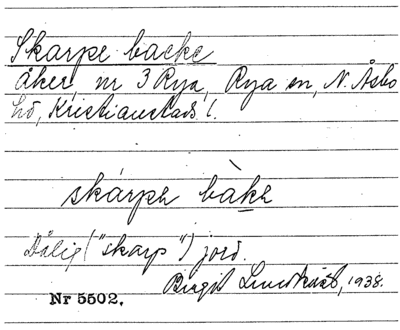 Skarpe backe
Åker, nr 3 Rya, Rya sn, N. Åsbo
hd, Kristianstads l.
skárpe bàke
Dålig ("skarp") jord.
Birgit Lundkvist, 1938.
Nr 5502.